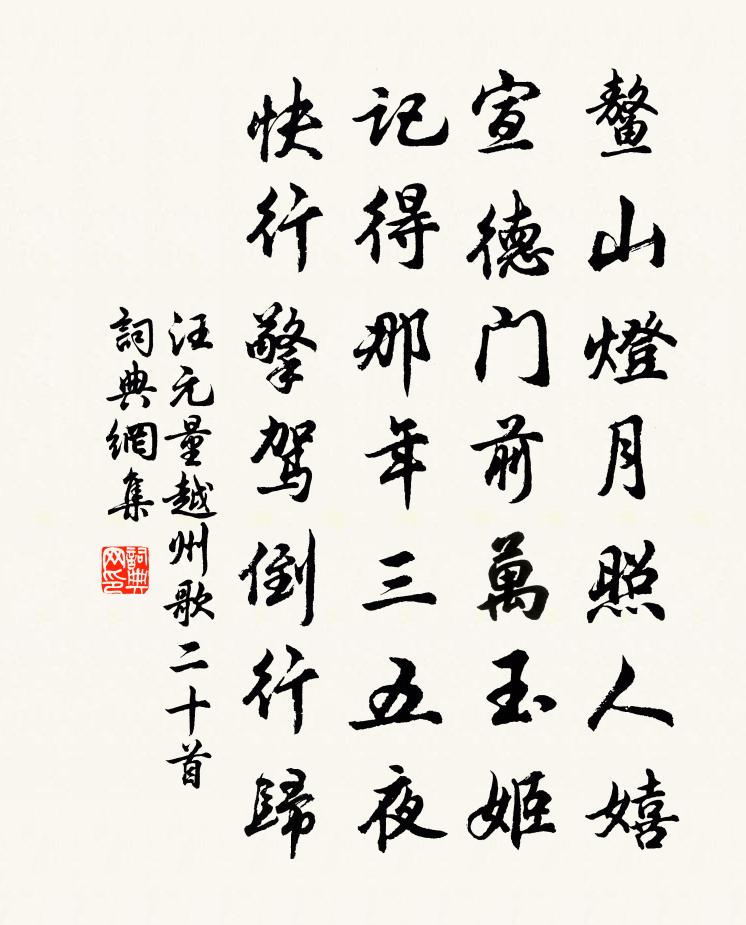 鼇山燈月照人嬉
宣德门前萬玉姬
记得那年三五夜
快行擎驾倒行歸
汪元量越州歌二十首
詞典網集
詞典网印